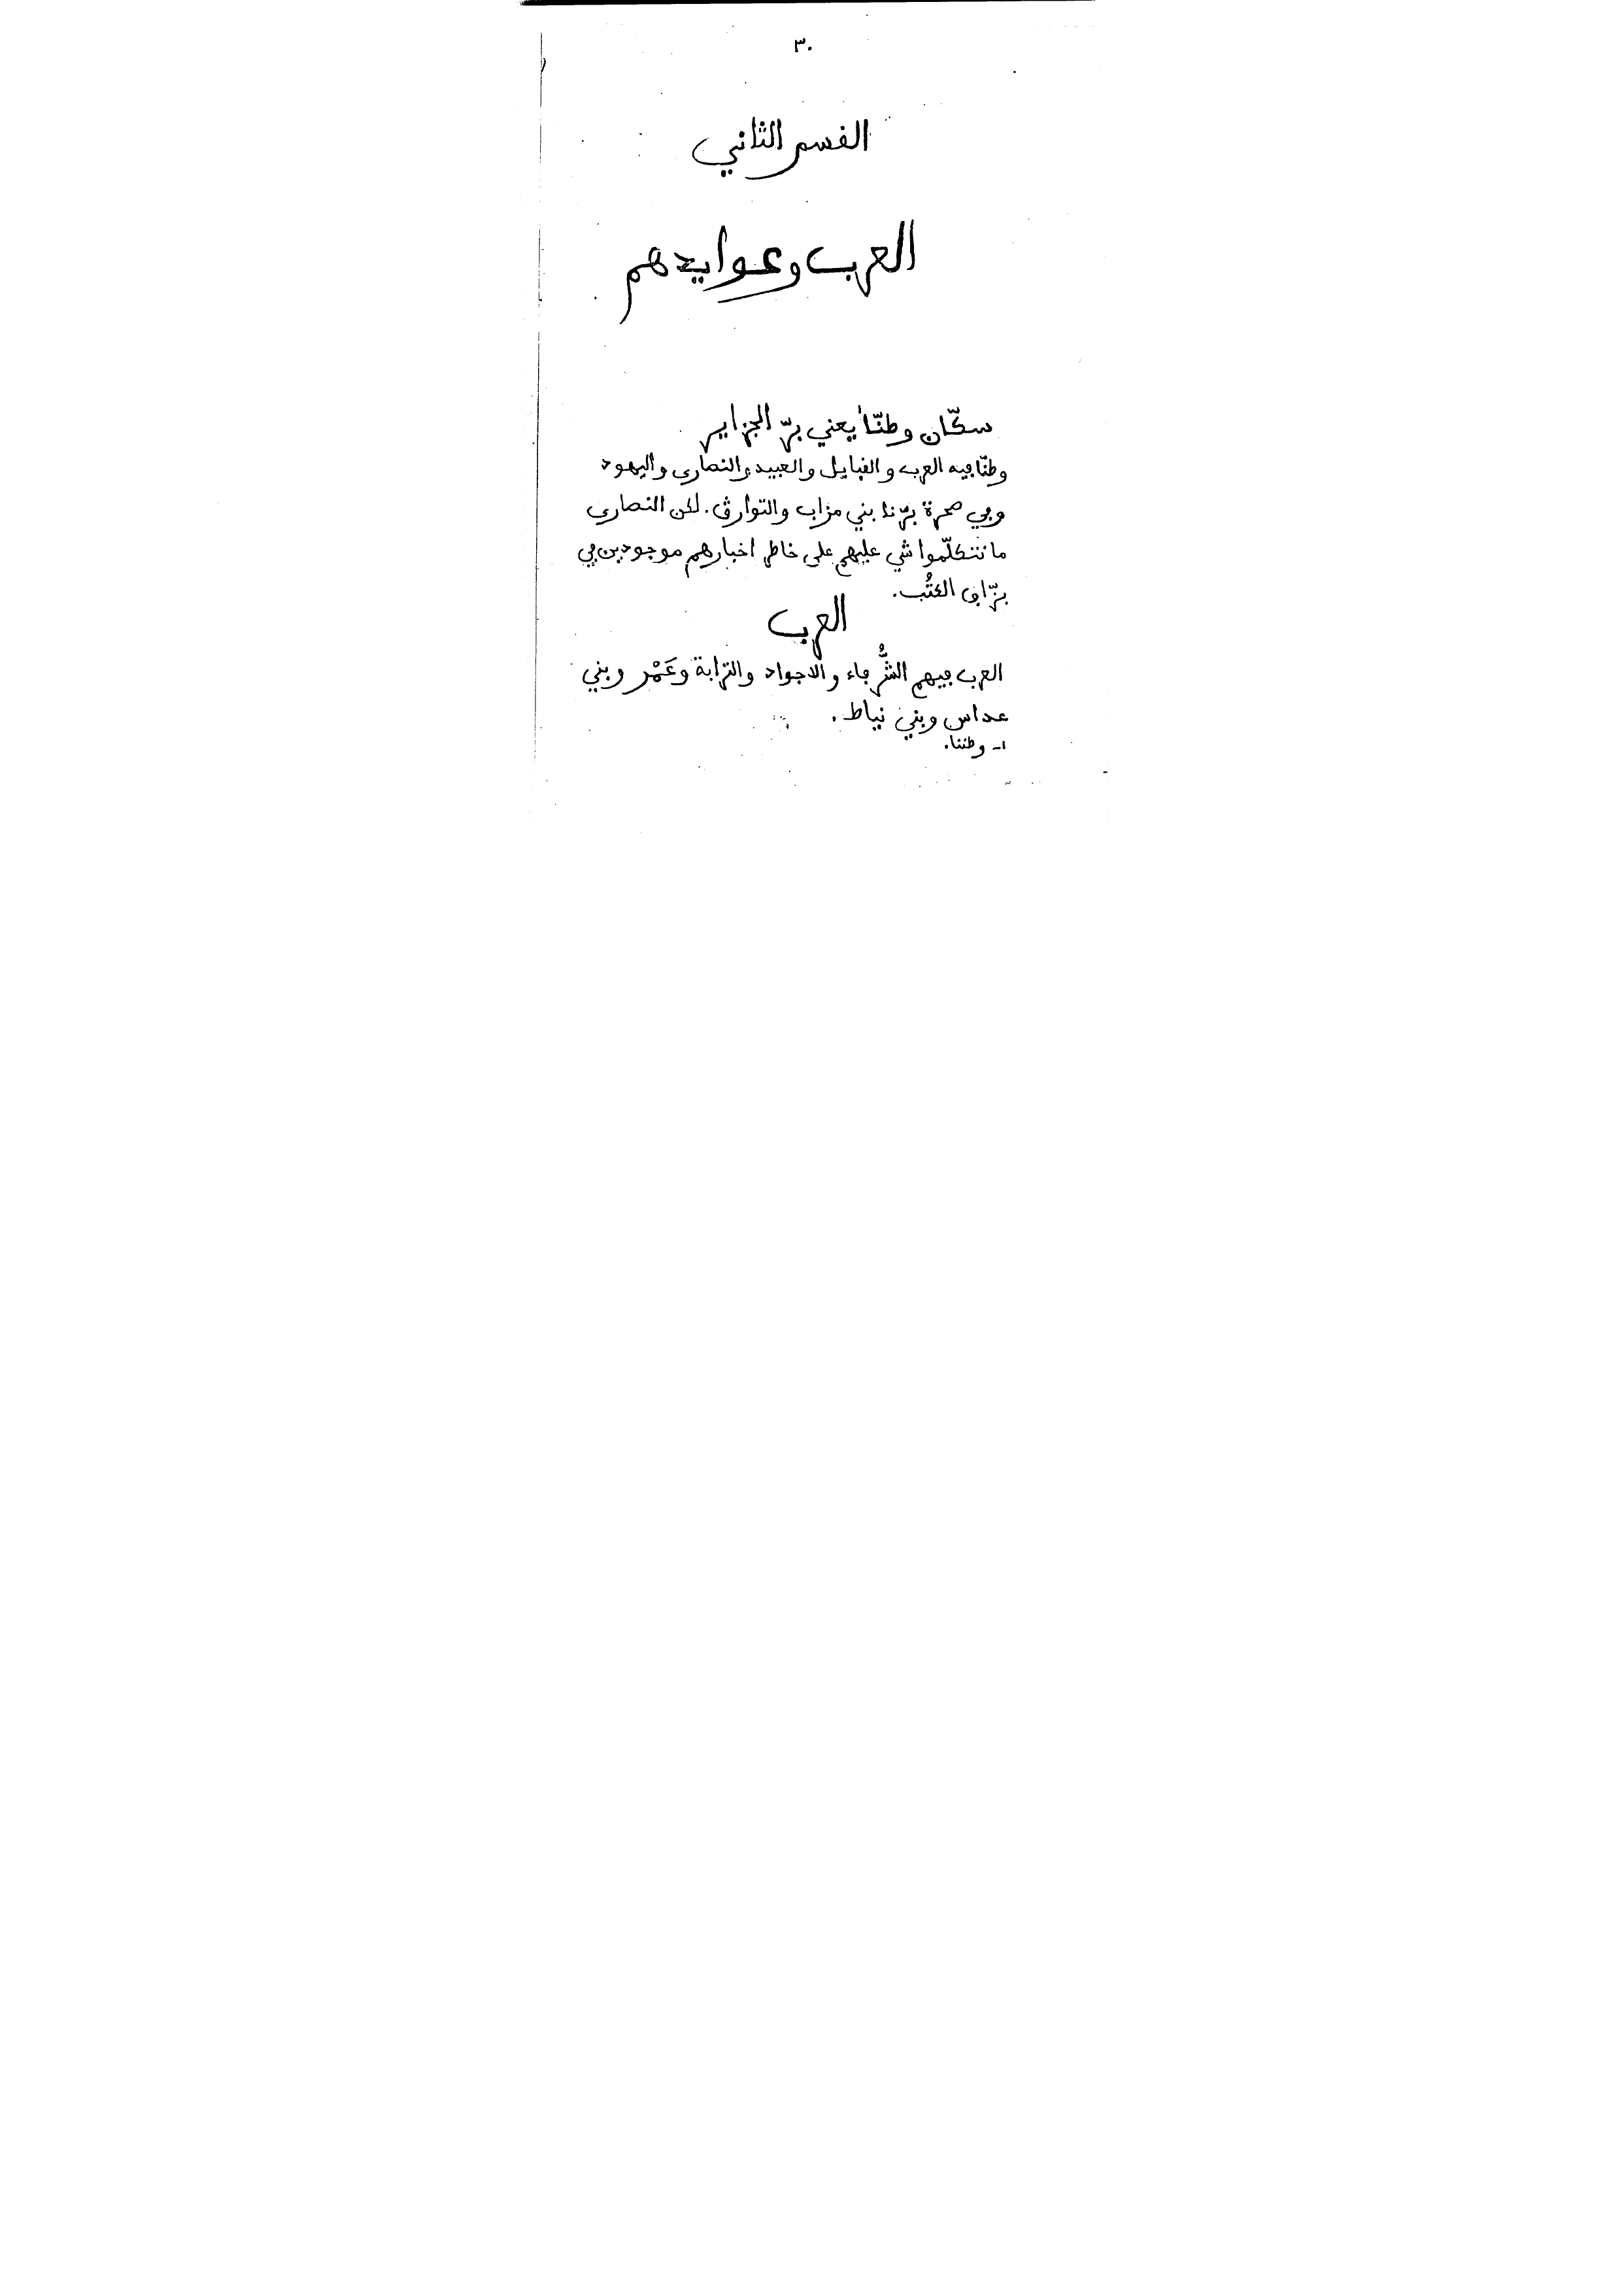 ٣٠
القسم الثاني
العرب وعوايدهم
سكّان وطنّا¹ يعني برّ الجزاير
وطنّا فيه العرب والقبايل والعبيد والنصارى واليهود
وفي صحرة برّنا بني مزاب والتوارق. لكن النصارى
ما نتكلّموا شي عليهم على خاطر اخبارهم موجودين في
بزّاف الكتُب.
العرب
العرب فيهم الشُّرفاء والاجواد والترابة وعَمْر وبني
عداس وبني نياط.
١ـ وطننا.